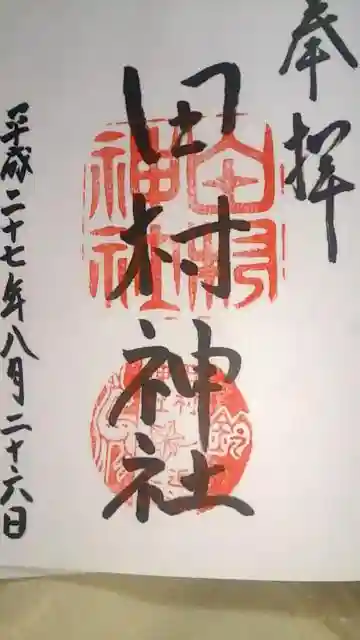 奉拝
田村神社
平成二十七年八月二十六日
田村
神社